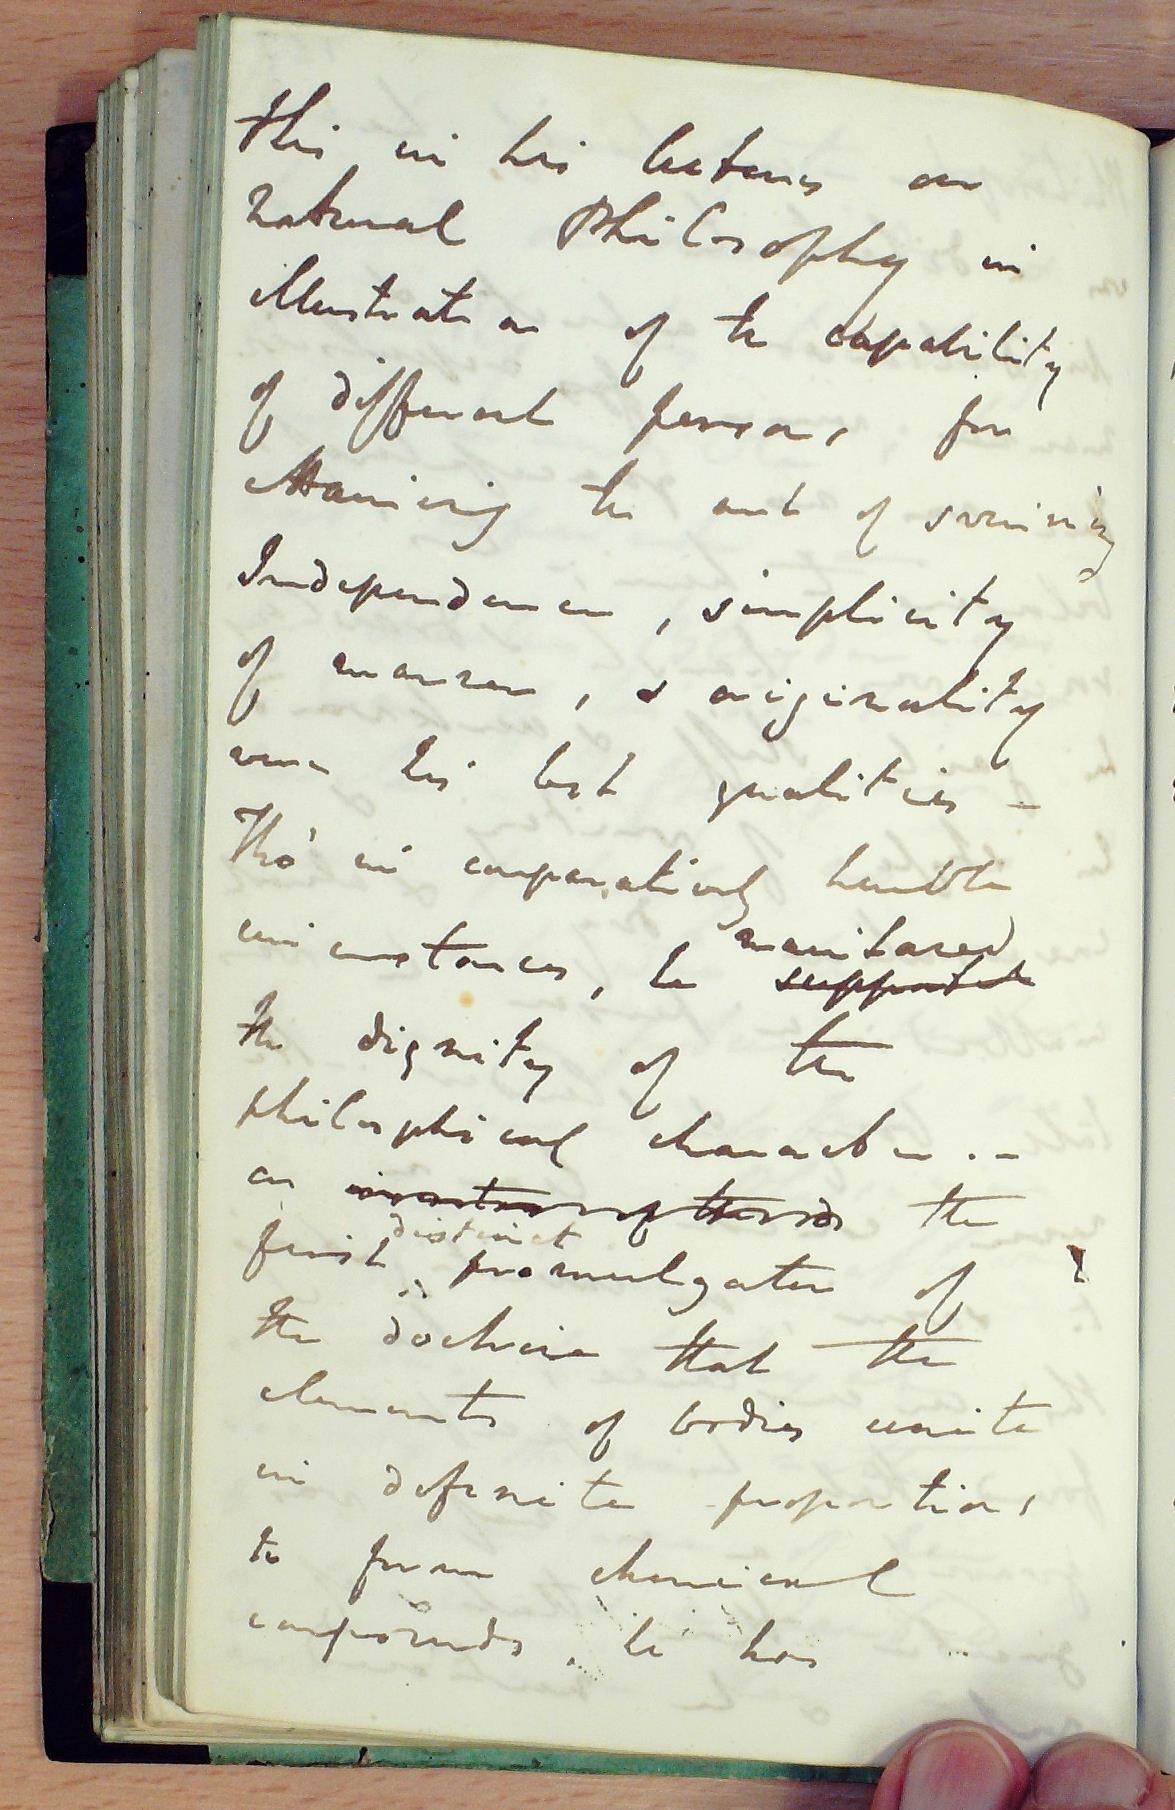 this in his lectures on
natural Philosophy in
illustration of the capability
of different persons for
attaining the art of swiming
Independence, simplicity
of manner, & originality
were his best qualities -
Tho' in comparatively humble
circumstances, he maintained supported
the dignity of the
philosophical character. -
as the
first distinct promulgator of
the doctrine that the
elements of bodies unite
in definite proportions
to form chemical
compounds, he has